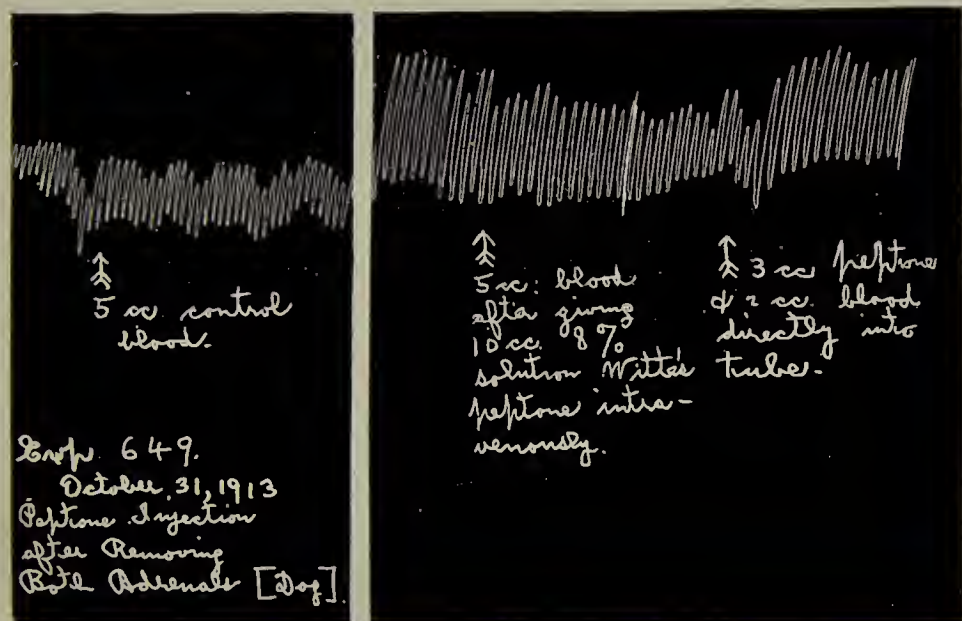 5 cc control
blood.
Exp. 649.
October 31, 1913
Peptone Injection
after Removing
Both Adrenals [Dog]
5 cc. blood
after giving
10 cc. 8%
solution Witte's
peptone intra-
venously.
3 cc peptone
& 2 cc. blood
directly into
tube.